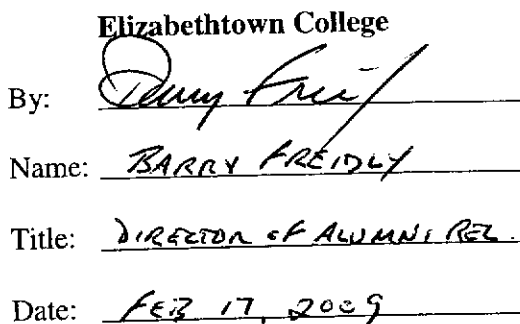 Elizabethtown College
By:
Name: BARRY FREIDLY
Title: DIRECTOR OF ALUMNI REL.
Date: FEB 17, 2009